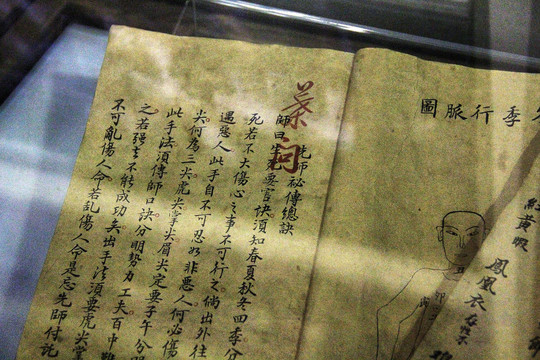 季行脈圖
鳳凰衣
葉問
先師祕傳總訣
師曰生死要官訣須知春夏秋冬四季分
死若不大傷心之事不可行之倘出外往
遇惡人此手自不可忍奴非惡人何必傷
尖何為三尖虎尖掌尖眉尖定要子午分明
此手法須傳師口訣分明勢力工夫百中難
之若強言不能成功矣出手法須要虎尖掌
不可亂傷人命若亂傷人命是忘先師付託